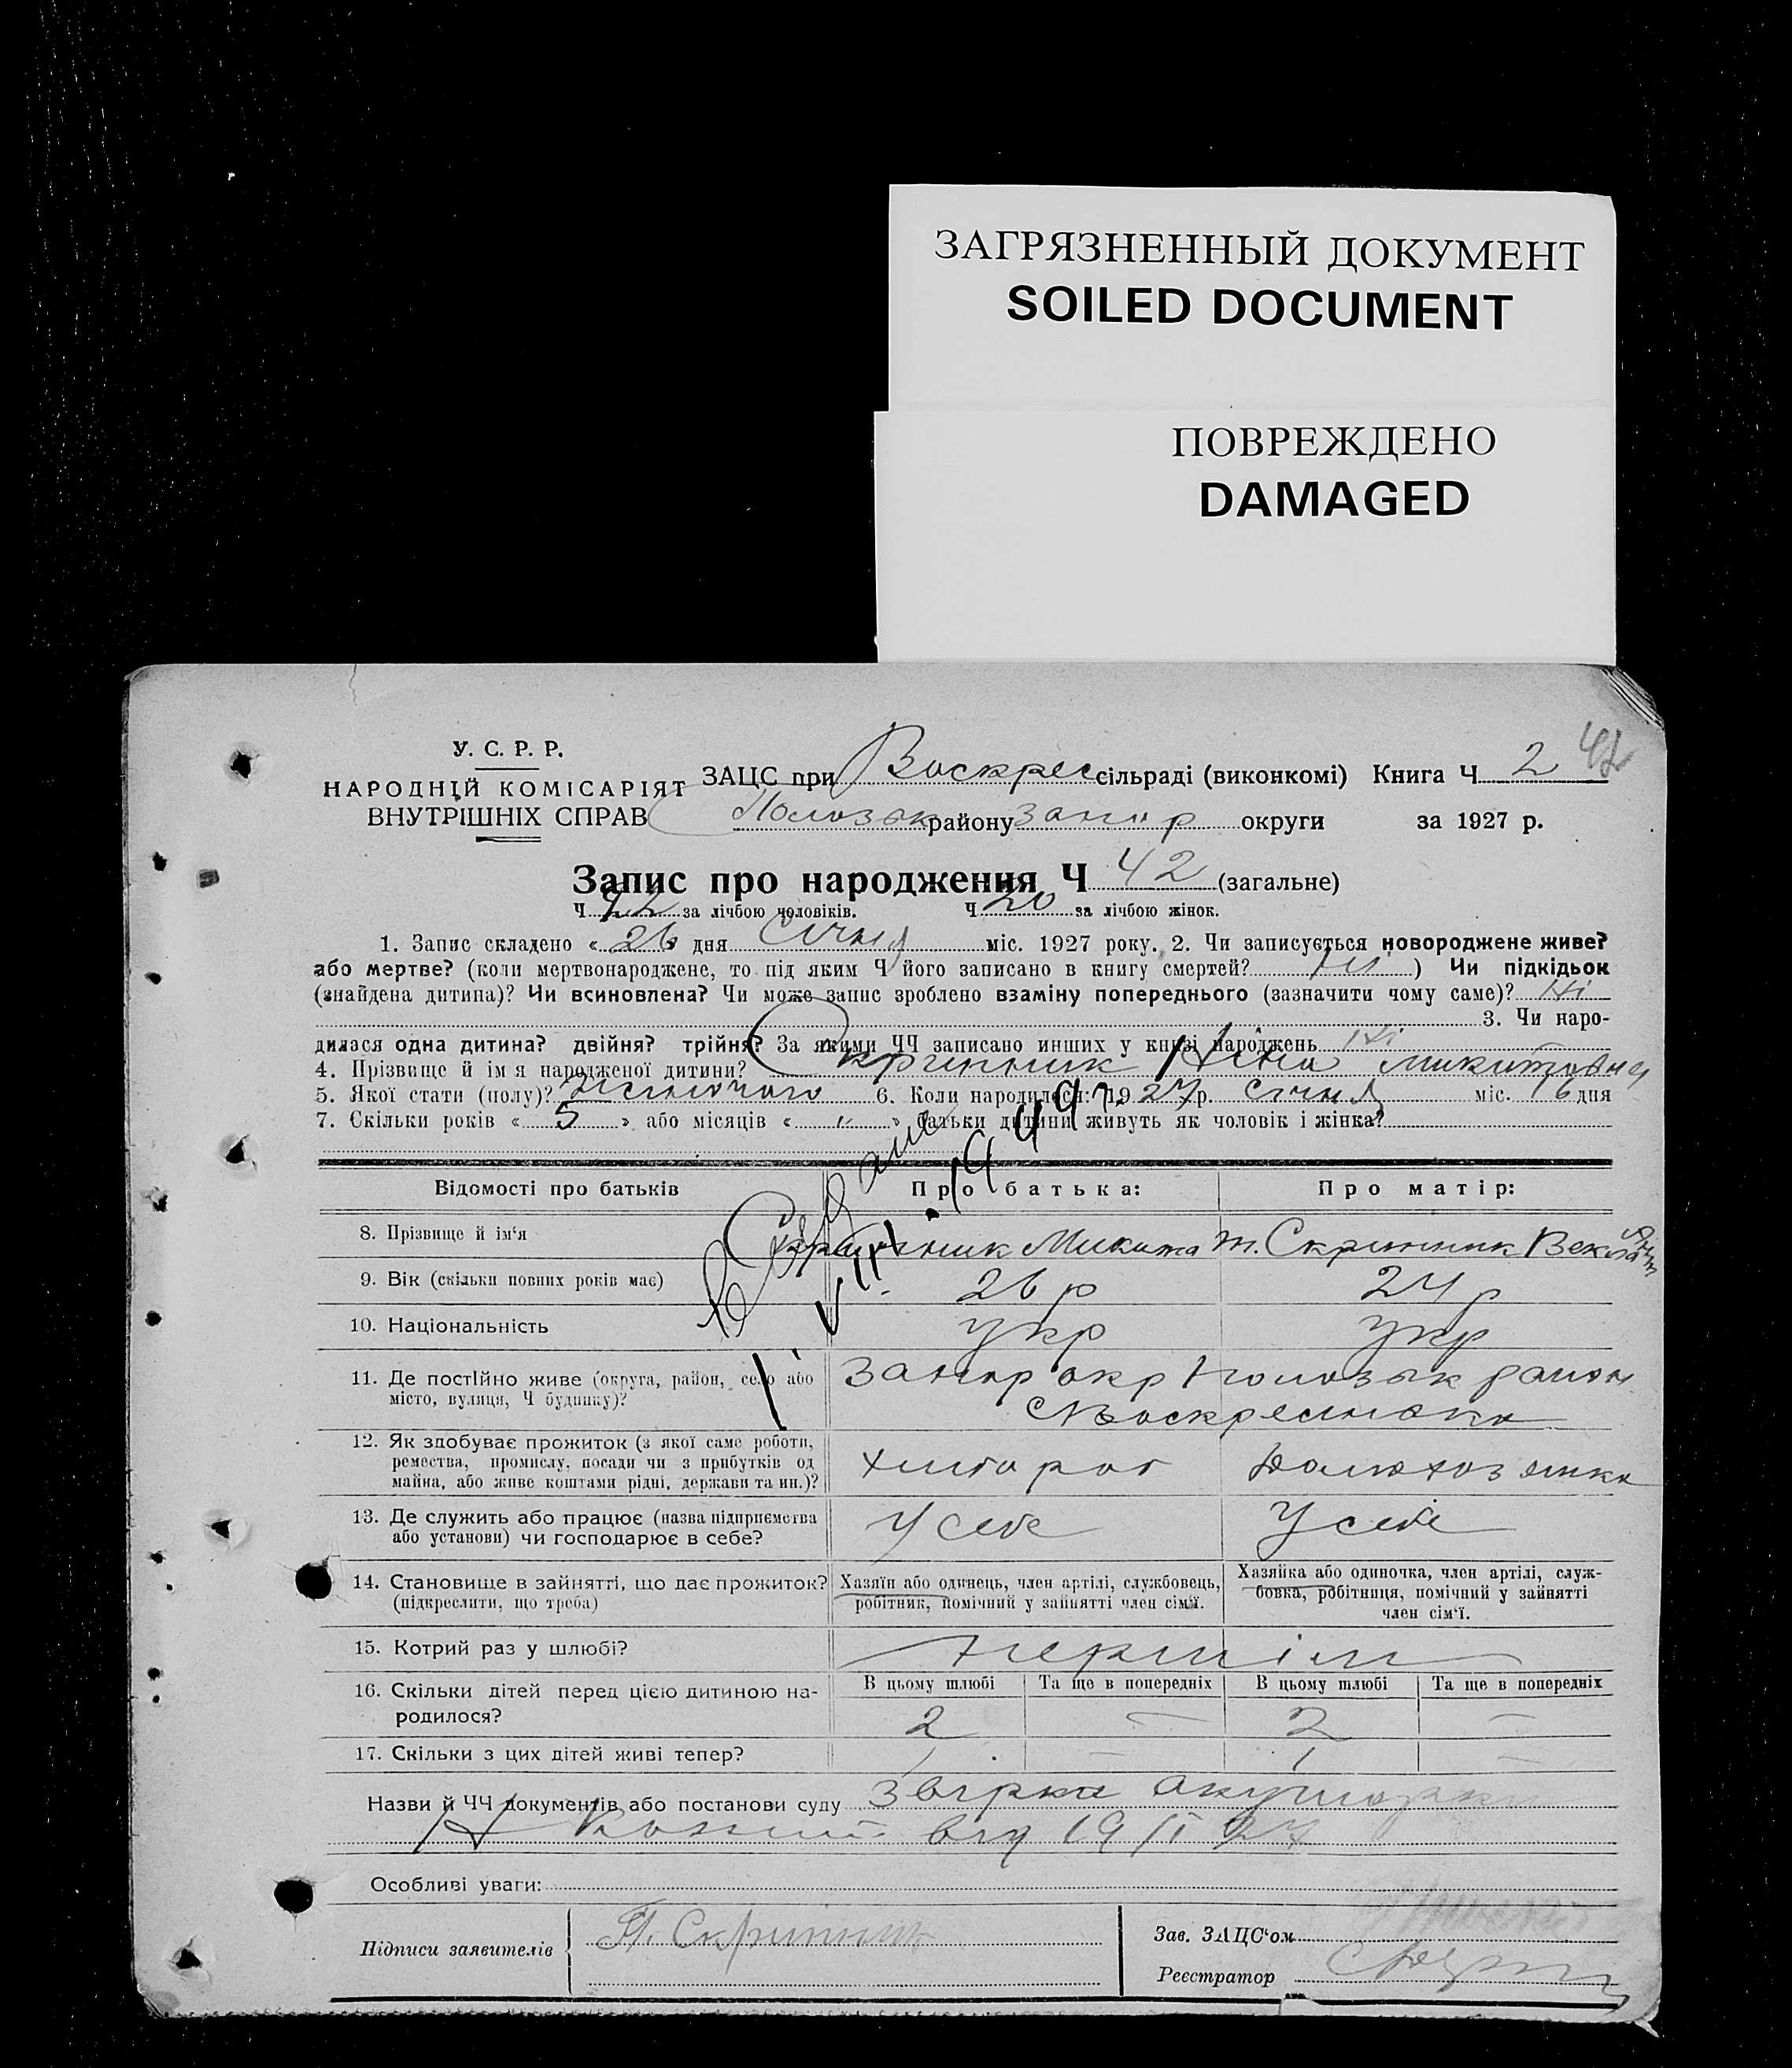 ЗАГРЯЗНЕННЫЙ ДОКУМЕНТ
SOILED DOCUMENT
ПОВРЕЖДЕНО
DAMAGED
42
У. С. Р. Р.
НАРОДНІЙ КОМІСАРІЯТ
ВНУТРІШНІХ СПРАВ
ЗАЦС при Воскрес сільраді (виконкомі) Книга Ч 2
Пологськ району Запор округи за 1927 р.
Запис про народження Ч 42 (загальне)
Ч 22 за лічбою чоловіків. Ч 20 за лічбою жінок.
1. Запис складено « 26 » дня Січня міс. 1927 року. 2. Чи записується новороджене живе?
або мертве? (коли мертвонароджене, то під яким Ч його записано в книгу смертей? ні ) Чи підкідьок
(знайдена дитина)? Чи всиновлена? Чи може запис зроблено взаміну попереднього (зазначити чому саме)? Ні
3. Чи наро-
дилася одна дитина? двійня? трійня? За якими ЧЧ записано инших у книзі народжень Ні
4. Прізвище й ім я народженої дитини? Скринник Ніна Микитовна
5. Якої стати (полу)? жіночого 6. Коли народилося: 1927 р. січня міс. 16 дня
7. Скільки років « 5 » або місяців « " » батьки дитини живуть як чоловік і жінка?
VIII. 1949 р.
Відомості про батьків Про батька: Про матір:
8. Прізвище й ім'я Скринник Микита Скринник Векла
9. Вік (скільки повних років має) 26 р 24 р
10. Національність укр укр
11. Де постійно живе (округа, район, село або Запор окр Пологськ район
місто, вулиця, Ч будинку)? с Воскресенка
12. Як здобуває прожиток (з якої саме роботи, хлібороб Домохозяйка
ремества, промислу, посади чи з прибутків од
майна, або живе коштами рідні, держави та ин.)?
13. Де служить або працює (назва підприємства У себе У себе
або установи) чи господарює в себе?
14. Становище в зайнятті, що дає прожиток? Хазяїн або одинець, член артілі, службовець, Хазяйка або одиночка, член артілі, служ-
(підкреслити, що треба) робітник, помічний у зайнятті член сім'ї. бовка, робітниця, помічний у зайнятті
член сім'ї.
15. Котрий раз у шлюбі? першім
16. Скільки дітей перед цією дитиною на- В цьому шлюбі Та ще в попередніх В цьому шлюбі Та ще в попередніх
родилося? 2 — 2 —
17. Скільки з цих дітей живі тепер? 1 — 1 —
Назви й ЧЧ документів або постанови суду акушорки
від 19/I 27
Особливі уваги:
Підписи заявителів Скринник
Зав. ЗАЦС'ом
Реєстратор